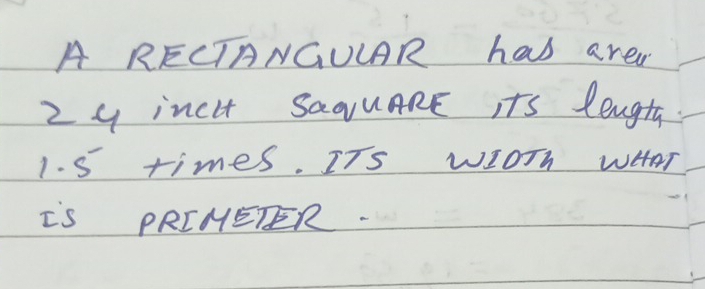 A RECTANGULAR has area
24 inch SAQUARE ITS length
1.5 times. ITS WIDTH WHAT
IS PRIMETER.